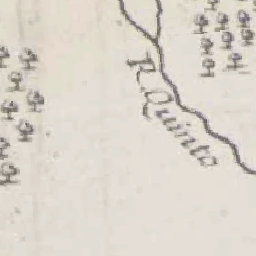 R. Quinto